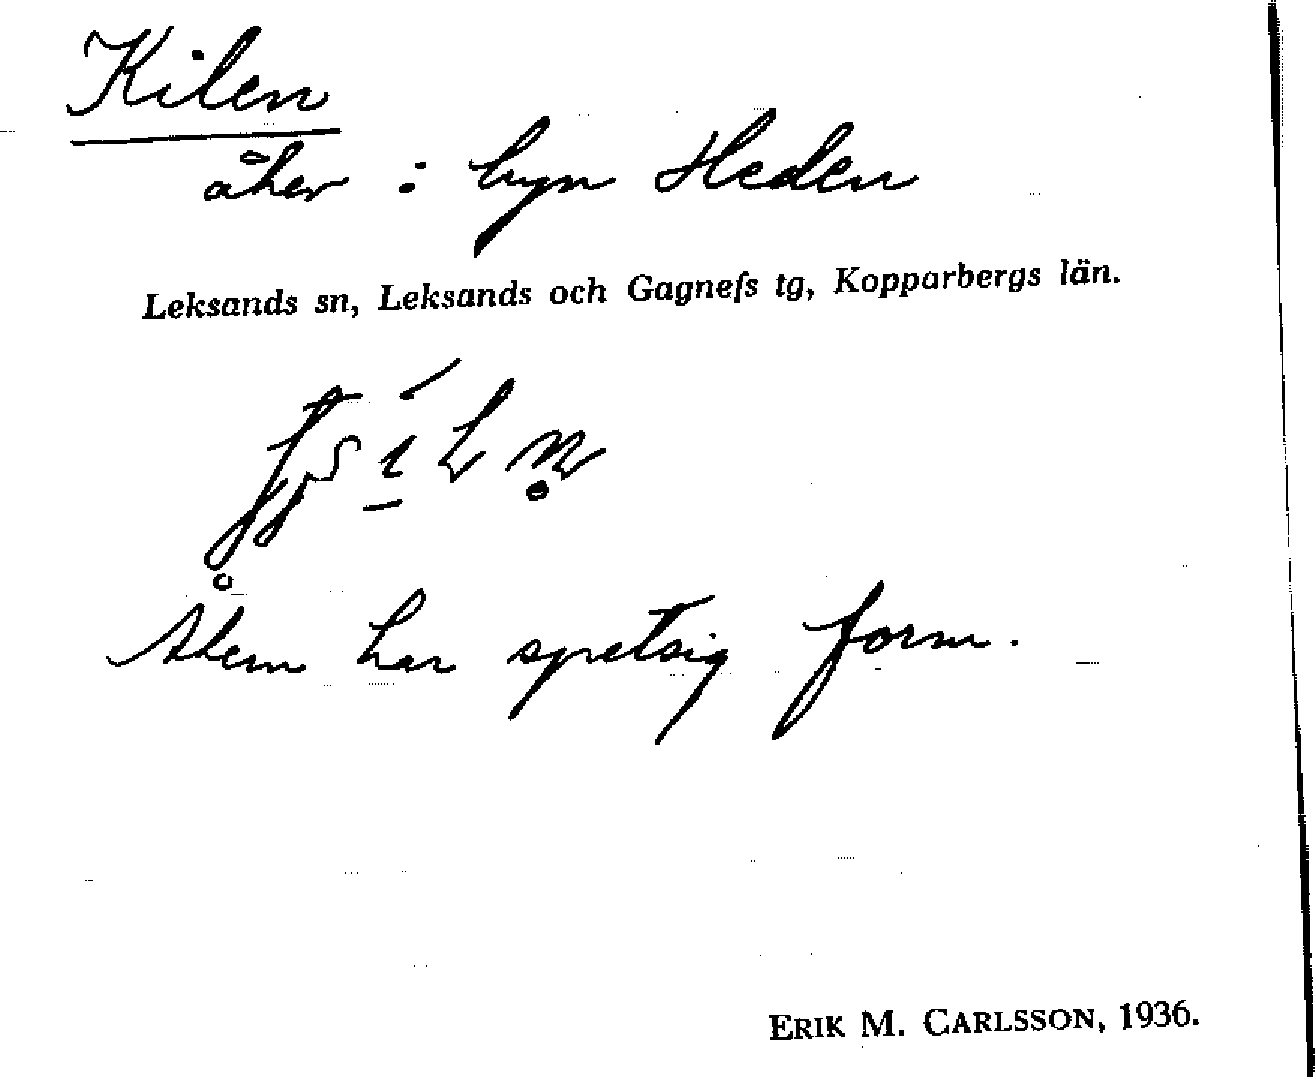 Kilen
åker i byn Heden
Leksands sn, Leksands och Gagnefs tg, Kopparbergs län.
Åkern har spetsig form.
ERIK M. CARLSSON, 1936.